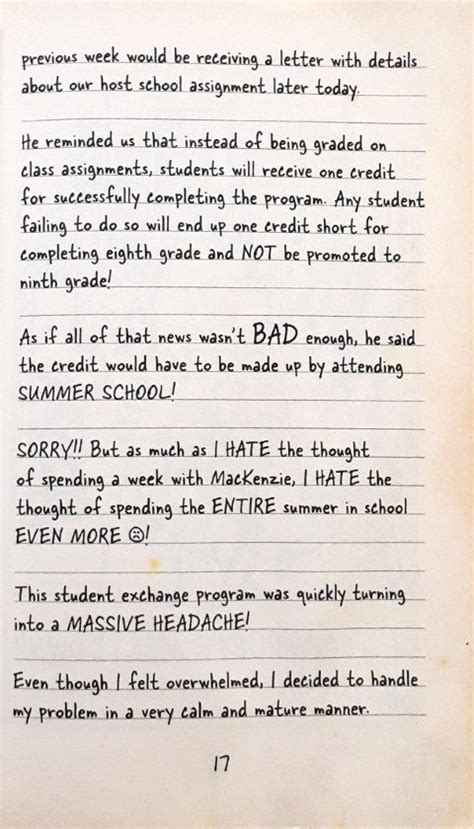 previous week would be receiving a letter with details
about our host school assignment later today.
He reminded us that instead of being graded on
class assignments, students will receive one credit
for successfully completing the program. Any student
failing to do so will end up one credit short for
completing eighth grade and NOT be promoted to
ninth grade!
As if all of that news wasn't BAD enough, he said
the credit would have to be made up by attending
SUMMER SCHOOL!
SORRY!! But as much as I HATE the thought
of spending a week with MacKenzie, I HATE the
thought of spending the ENTIRE summer in school
EVEN MORE ☹!
This student exchange program was quickly turning
into a MASSIVE HEADACHE!
Even though I felt overwhelmed, I decided to handle
my problem in a very calm and mature manner.
17